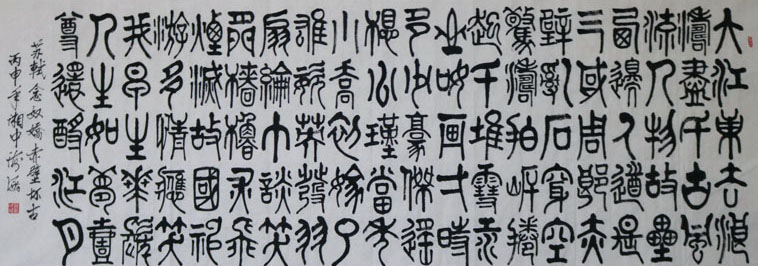 大江東去浪
濤盡千古風
流人物故壘
西邊人道是
三國周郎赤
壁亂石穿空
驚濤拍岸捲
起千堆雪江
山如画一時
多少豪傑遥
想公瑾當年
小喬初嫁了
雄姿英發羽
扇綸巾談笑
間檣櫓灰飛
煙滅故國神
游多情應笑
我早生華髮
人生如夢壹
尊還酹江月
苏軾念奴嬌赤壁怀古
丙申年湘中